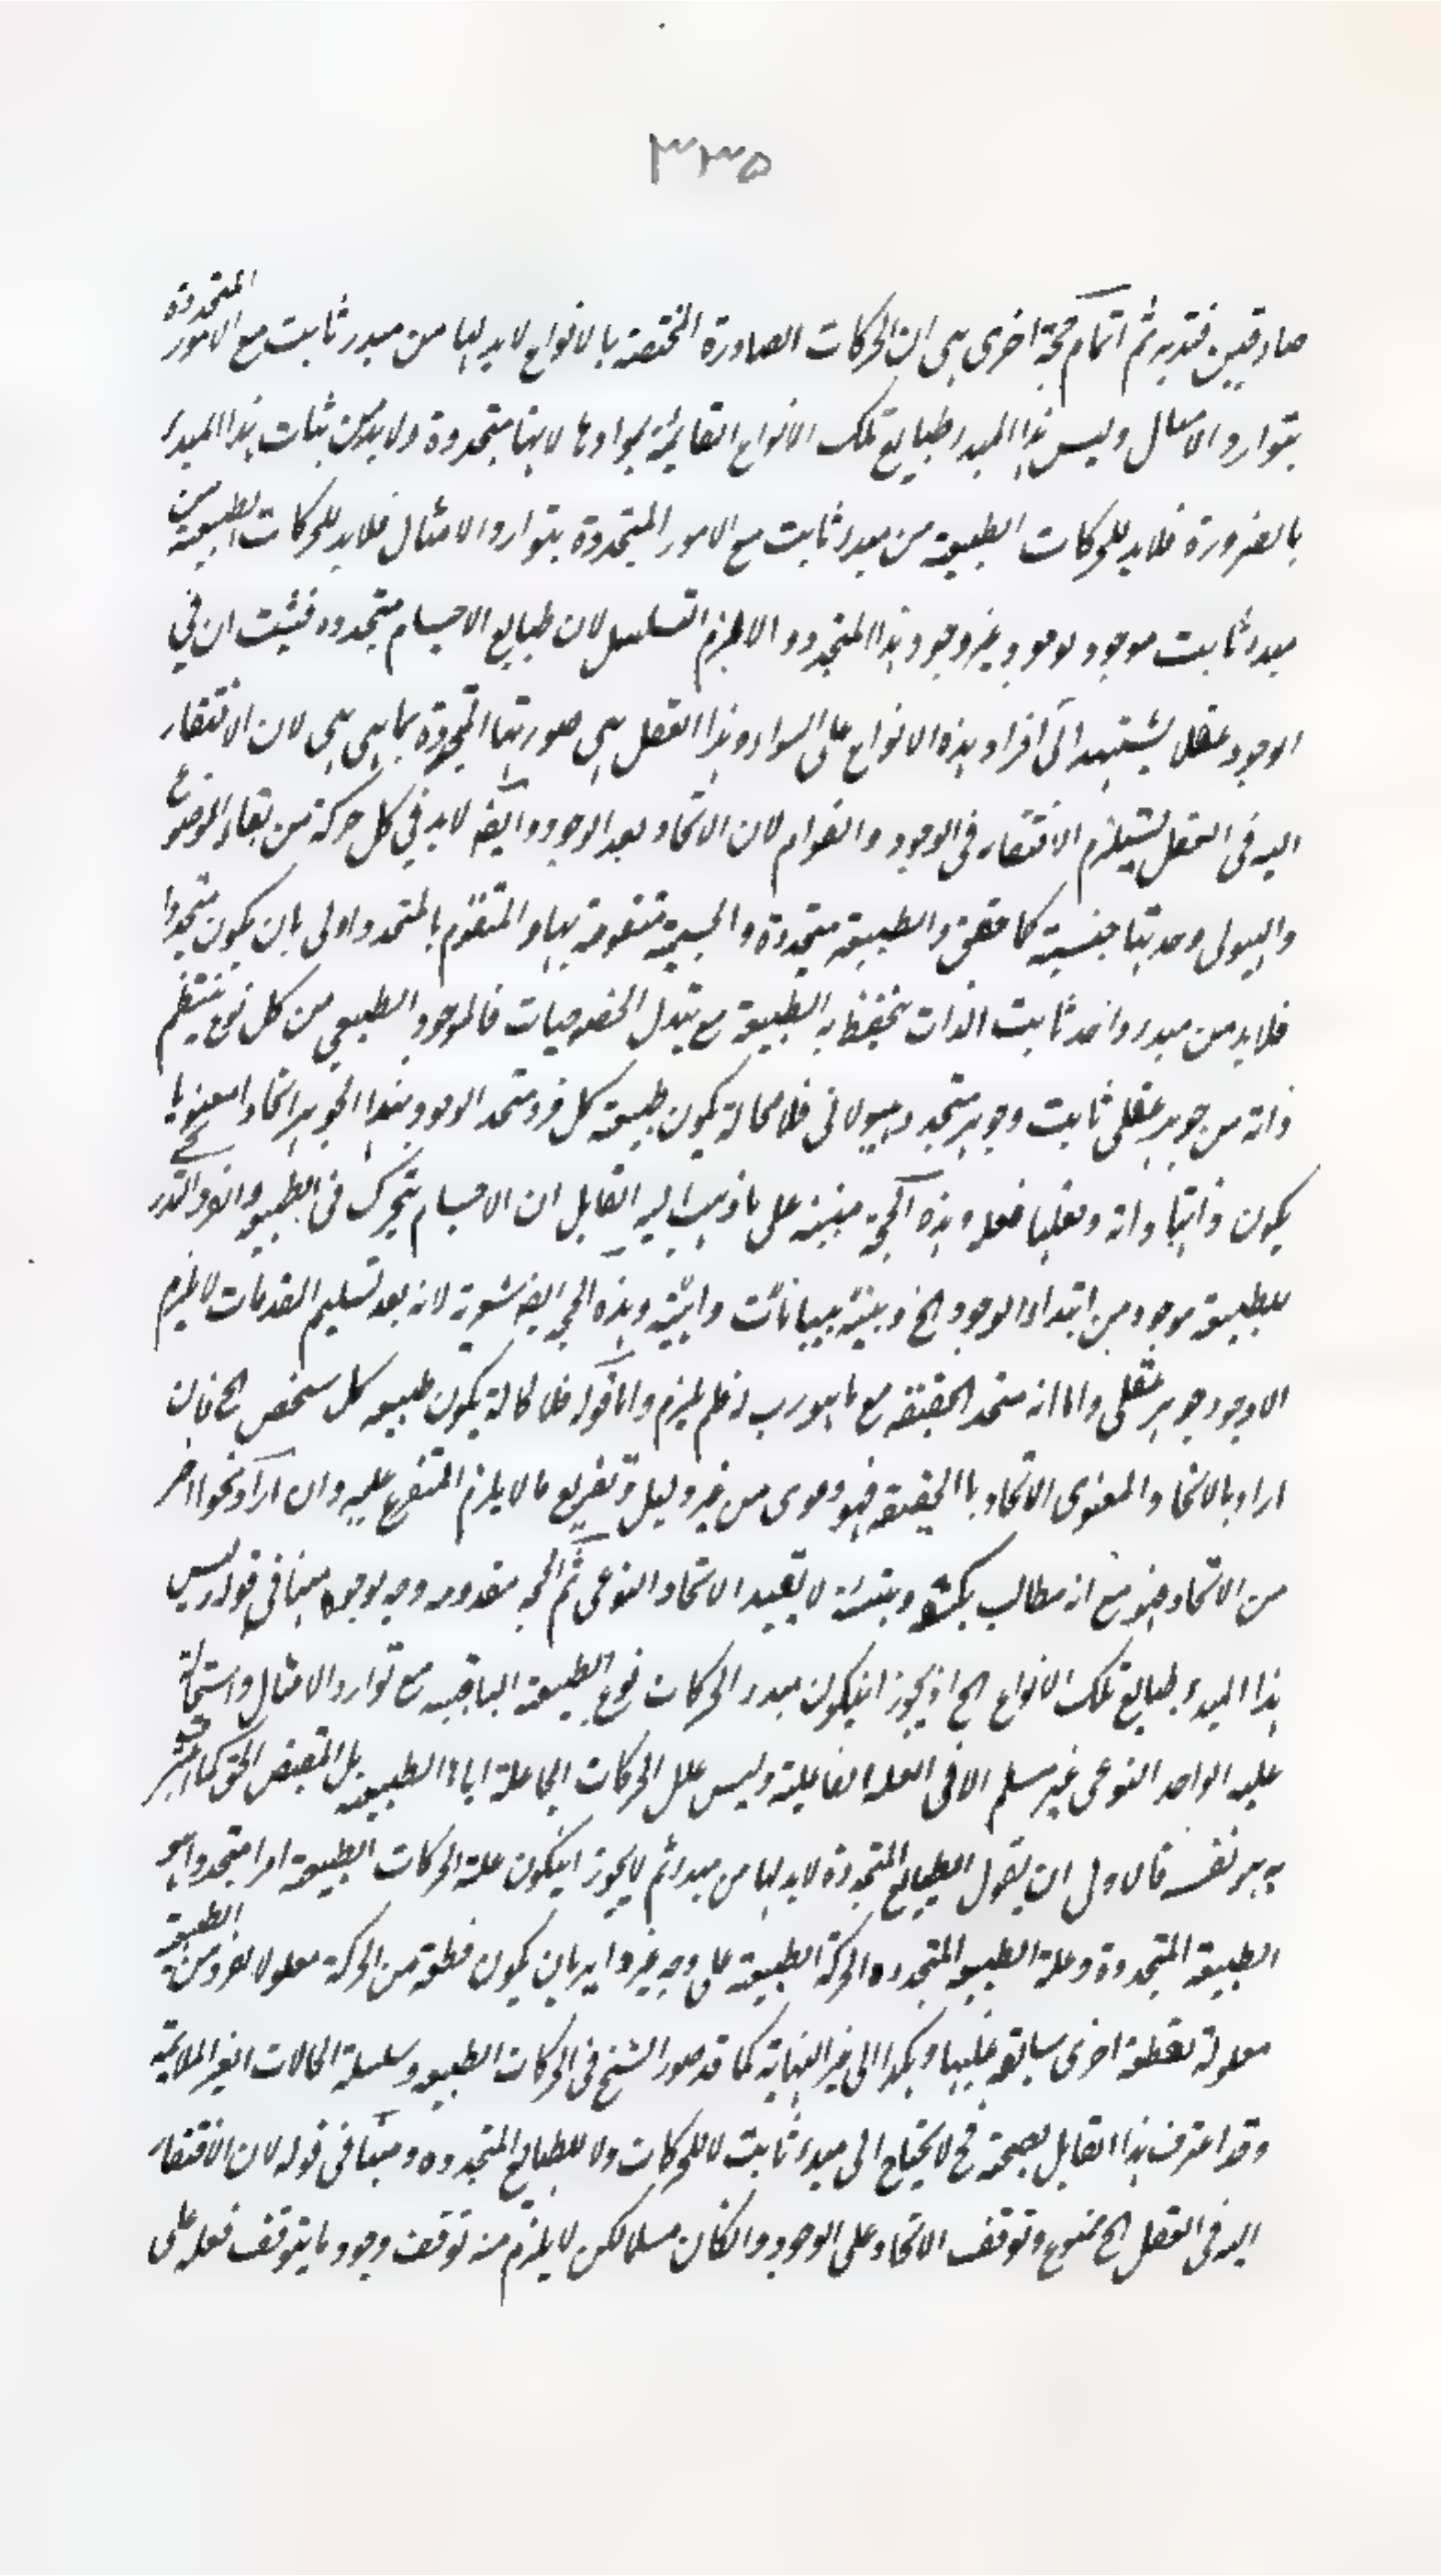 ٣٣٥
صادقين فتدبر ثم اتمام حجة اخرى هى ان الحركات الصادرة المختصة بالانواع لابد لها من مبدء ثابت مع الامور المتجددة
بتوارد الامثال وليس هذا المبدء طبايع تلك الانواع القائمة بموادها لانها متجددة ولابد من ثبات هذا المبدء
بالضرورة فلابد للحركات الطبيعية من مبدء ثابت مع الامور المتجددة بتوارد الامثال فلابد للحركات الطبيعية من
مبدء ثابت موجود بوجود غير وجود هذا المتجدد والا يلزم التسلسل لان طبايع الاجسام متجددة فيثبت ان في
الوجود عقلا يستند الى افراد هذه الانواع على السواء وهذا العقل هى صورتها المجردة بما هى هى لان الافتقار
اليه فى العقل يستلزم الافتقار فى الوجود والقوام لان الاتحاد بعد الوجود وايضا لابد في كل حركة من بقاء الموضوع
والهيولى وحدتها جنسية كما حقق والطبيعة متجددة والجسمية متقومة بها والمتقوم بالمتجدد اولى بان يكون متجددا
فلابد من مبدء واحد ثابت الذات تنحفظ به الطبيعة مع تبدل الخصوصيات فالموجود الطبيعي من كل نوع ينتظم
ذاته من جوهر عقلى ثابت وجوهر متجدد هيولانى فلا محالة يكون طبيعة كل فرد متحد الوجود بهذا الجوهر اتحادا معنويا
يكون ذاتها ذاته وفعلها فعله وهذه الحجة مبنية على ما ذهب اليه القايل ان الاجسام يتحرك فى الطبيعة وانه
للطبيعة موجود من ابتداء الوجود الخ وبينة ببيانات واهية وهذه الحجة ايضا لانه بعد تسليم المقدمات لا يلزم
الا وجود جوهر عقلى واما انه متحد الحقيقة مع ما هو رب له فلم يلزم واما قوله فلا محالة يكون طبيعة كل شخص الخ فان
اراد بالاتحاد المعنوى الاتحاد بالحقيقة فهو دعوى من غير دليل وتفريع ما لا يلزم المتفرع عليه وان اراد نحوا اخر
من الاتحاد فهو مع انه مطالب لا يفيد الاتحاد النوعى ثم الحجة مقدوحة بوجوه منها فى قوله وليس
هذا المبدء طبايع تلك الانواع الخ اذ يجوز ان يكون مبدء الحركات نوع الطبيعة الباقية مع توارد الامثال واستحالة
علية الواحد النوعى غير مسلم الا فى العلة الفاعلية وليس علل الحركات الجاعلة اياها الطبيعة بل المفيض الحق كما اعترف
به هو نفسه فالاولى ان يقول الطبايع المتجددة لابد لها من مبدء ثم لا يجوز ان يكون علة الحركات الطبيعية امرا متجددا هو
الطبيعة المتجددة وعلة الطبيعة المتجددة الحركة الطبيعية على وجه غير داير بان يكون قطعة من الحركة معلولا لفرد من الطبيعة
معلولة لقطعة اخرى سابقة عليها وهكذا الى غير النهاية كما قد صور الشيخ فى الحركات الطبيعية وسلسلة الحالات الغير الملايمة
وقد اعترف هذا القايل بصحته فح لا يحتاج الى مبدء ثابت لا للحركات ولا للطبايع المتجددة ومنها فى قوله لان الافتقار
اليه فى العقل الخ ممنوع وتوقف الاتحاد على الوجود وان كان مسلما لكن لا يلزم منه توقف وجود ما يتوقف فعله على